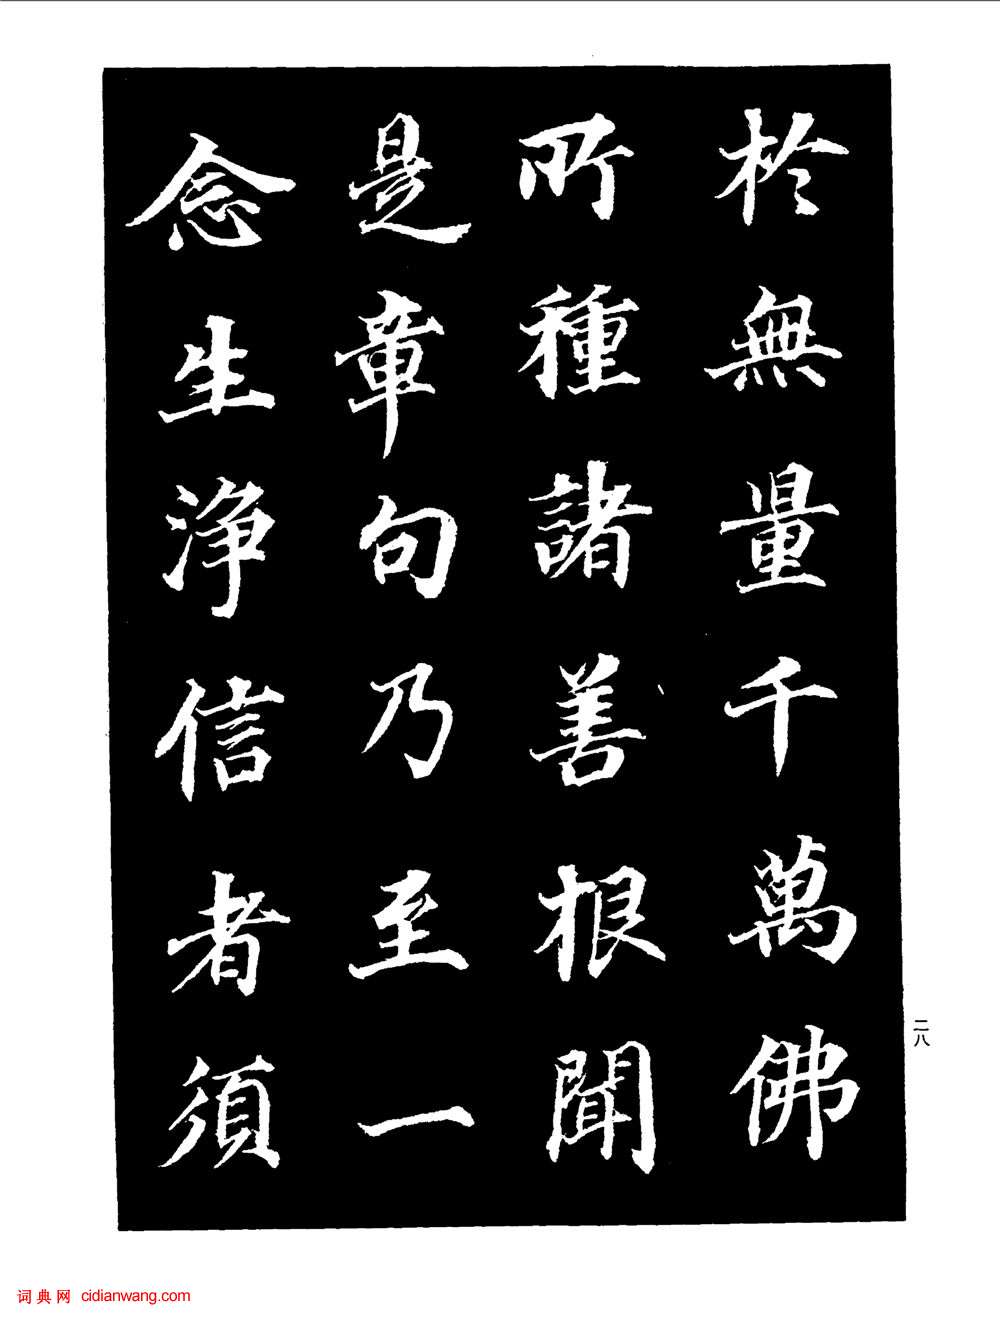 於無量千萬佛
所種諸善根聞
是章句乃至一
念生淨信者須
二八
词典网 cidianwang.com